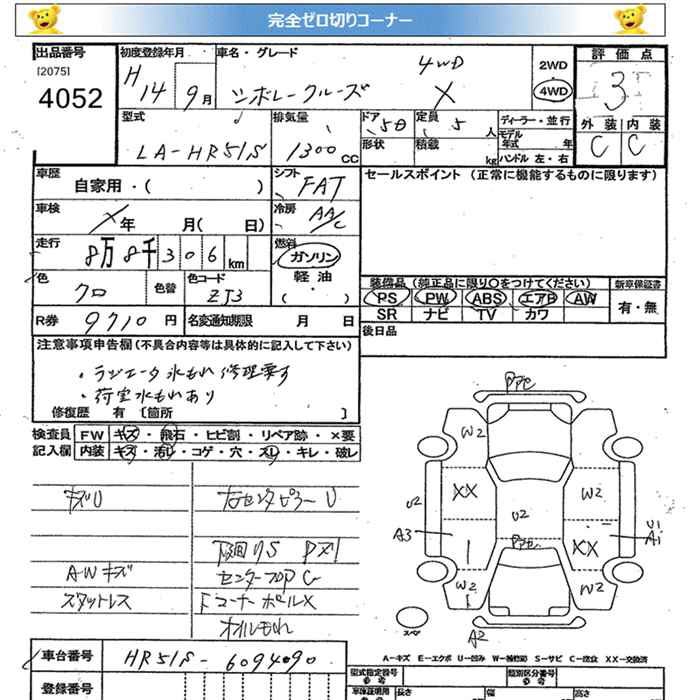 完全ゼロ切りコーナー
出品番号
[2075]
4052
初度登録年月
H14 9月
車名・グレード
4WD
シボレークルーズ X
2WD
4WD
評価点
3
外装 内装
C C
型式
LA-HR51S
排気量
1300 CC
ドア
5D
形状
定員
5人
積載
kg
ディーラー・並行
モデル年式 年
ハンドル 左・右
車歴
自家用・( )
シフト
FAT
セールスポイント (正常に機能するものに限ります)
車検
X年 月( 日)
冷房
AA/C
走行
8万8千306km
燃料
ガソリン
軽油
・( )
色
クロ
色替
色コード
ZJ3
装備品 (純正品に限り○をつけてください)
PS PW ABS エアB AW
SR ナビ TV カワ
新車保証書
有・無
R券 9710円
名変通知期限 月 日
後日品
注意事項申告欄 (不具合内容等は具体的に記入して下さい)
・ラジエータ水もれ修理要す
・荷室水もれあり
修復歴 有 [箇所 ]
検査員 FW キズ・飛石・ヒビ割・リペア跡・×要
記入欄 内装 キズ・汚レ・コゲ・穴・スレ・キレ・破レ
キズU
右センターピラーU
下廻りS Pズリ
AWキズ
スタットレス
オイルもれ
W2
XX
W2
U2
U2
A3
U1
A1
XX
W2
W2
スペア
A2
A-キズ E-エクボ U-凹み W-補修跡 S-サビ C-腐食 XX-交換済
車台番号 HR51S-6094090
登録番号
型式指定番号
類別区分番号
長さ
幅
高さ